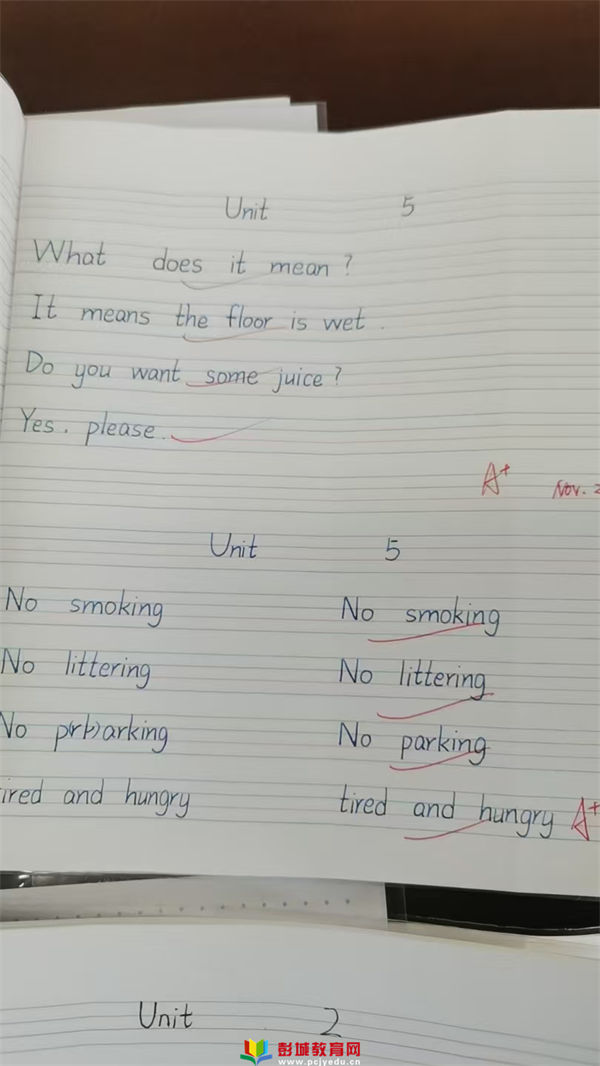 Unit 5
What does it mean?
It means the floor is wet.
Do you want some juice?
Yes. please.
A+ Nov. 2
Unit 5
No smoking No smoking
No littering No littering
No parking No parking
tired and hungry tired and hungry A+
Unit 2
彭城教育网
www.pcjyedu.cn